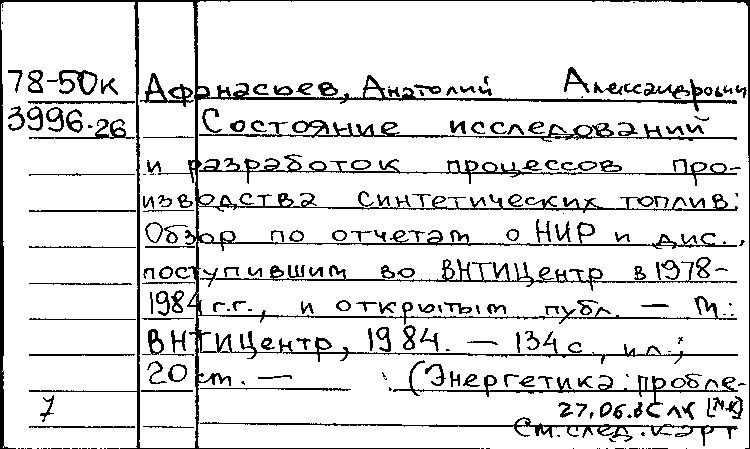 78-50к Афанасьев, Анатолий Александрович
3996.26 Состояние исследований
и разработок процессов про-
изводства синтетических топлив:
Обзор по отчетам о НИР и дис.,
поступившим во ВНТИЦентр в 1978-
1984 г.г., и открытым публ. — М.:
ВНТИЦентр, 1984. — 134 с., ил.;
20 ст. — (Энергетика: пробле-
7 27.06.
См. след. карт